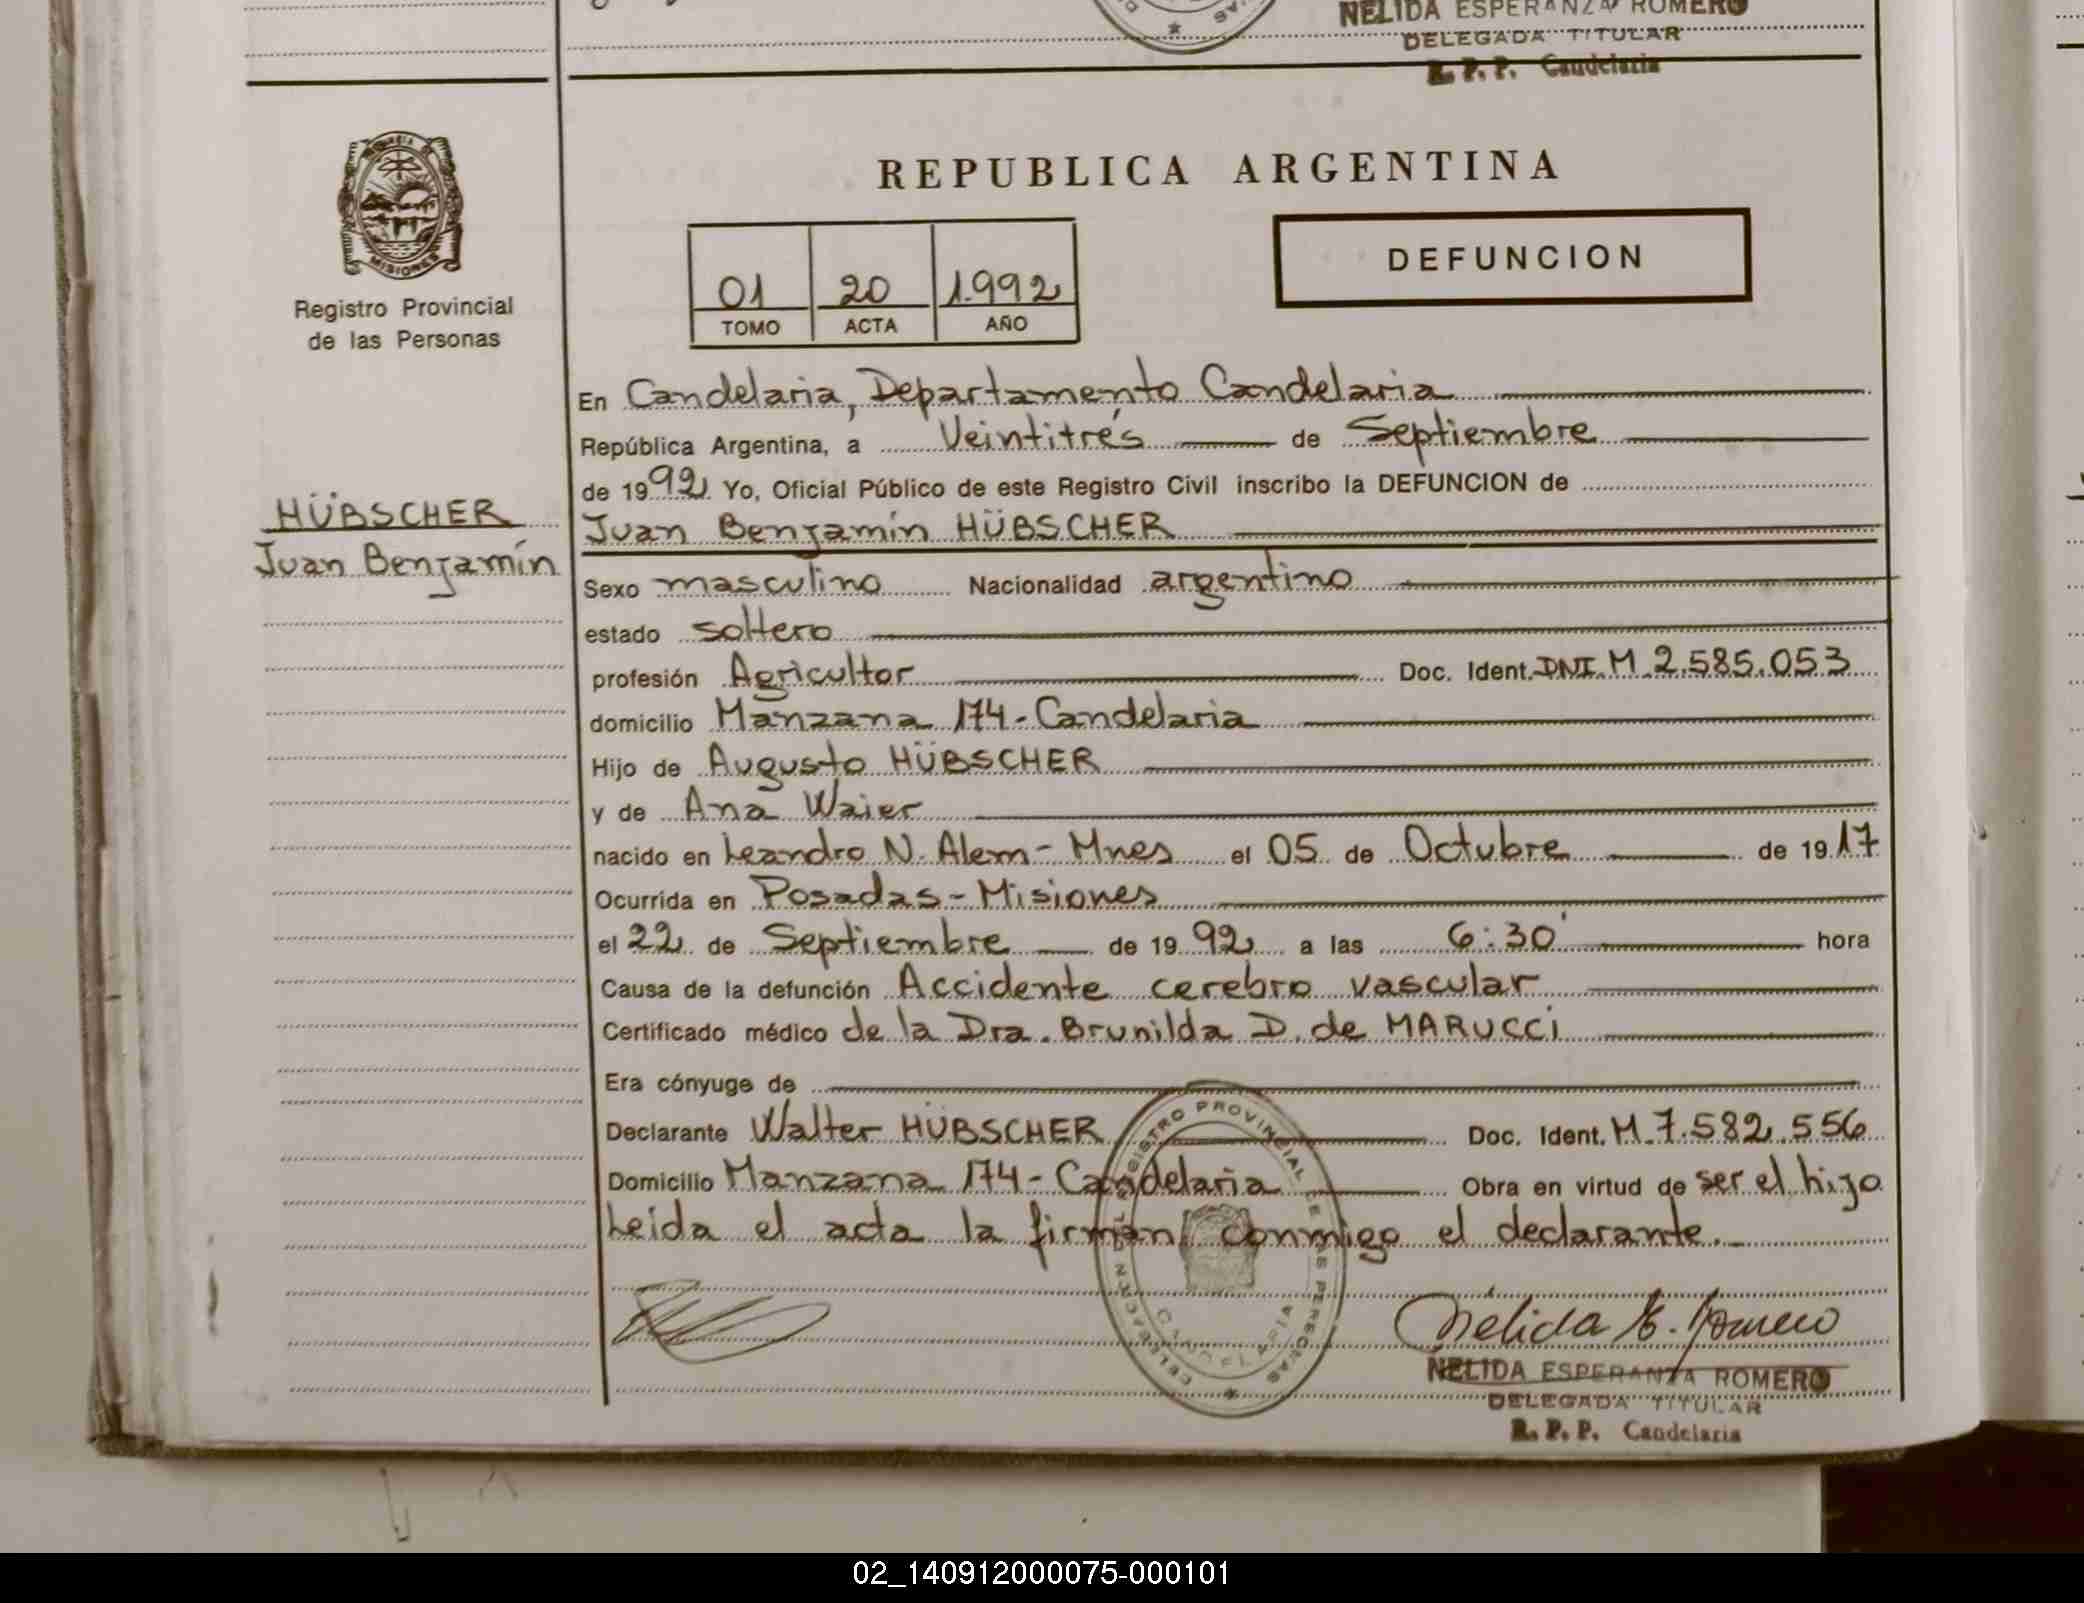 NELIDA ESPERANZA ROMERO
DELEGADA TITULAR
R. P. P. Candelaria
MISIONES
Registro Provincial
de las Personas
REPUBLICA ARGENTINA
01 20 1.992
TOMO ACTA AÑO
DEFUNCION
En Candelaria, Departamento Candelaria
República Argentina, a Veintitrés de Septiembre
de 1992 Yo, Oficial Público de este Registro Civil inscribo la DEFUNCION de
HÜBSCHER
Juan Benjamín
Juan Benjamín HÜBSCHER
Sexo masculino Nacionalidad argentino
estado soltero
profesión Agricultor Doc. Ident. DNI. M. 2.585.053
domicilio Manzana 174- Candelaria
Hijo de Augusto HÜBSCHER
y de Ana Waier
nacido en Leandro N. Alem- Mnes el 05 de Octubre de 1917
Ocurrida en Posadas- Misiones
el 22 de Septiembre de 1992 a las 6:30' hora
Causa de la defunción Accidente cerebro vascular
Certificado médico de la Dra. Brunilda D. de MARUCCI
Era cónyuge de
Declarante Walter HÜBSCHER Doc. Ident. M. 7.582.556
Domicilio Manzana 174- Candelaria Obra en virtud de ser el hijo
Leida el acta la firman conmigo el declarante.
REGISTRO PROVINCIAL DE LAS PERSONAS
CANDELARIA
Nélida E. Romero
NELIDA ESPERANZA ROMERO
DELEGADA TITULAR
R. P. P. Candelaria
02_140912000075-000101